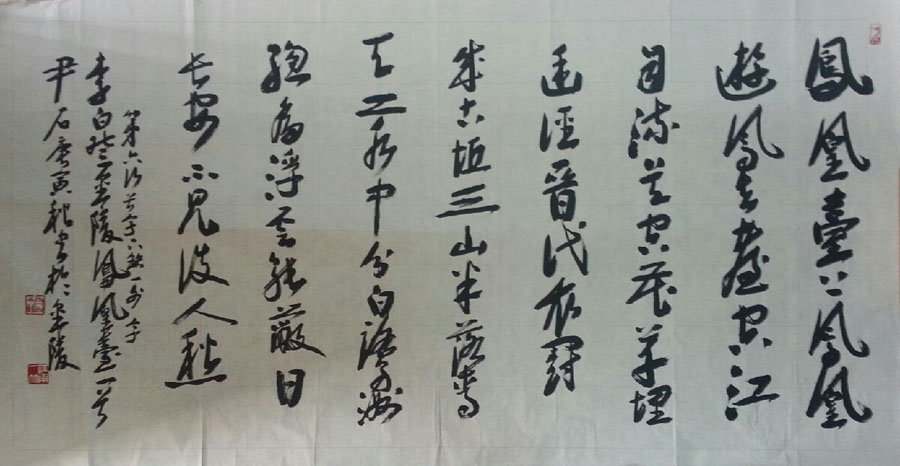 鳳凰臺上鳳凰
遊鳳去臺空江
自流吴宮花草埋
幽徑晉代衣冠
成古坵三山半落青
天二水中分白鷺洲
總為浮雲能蔽日
長安不見使人愁
第六行天字下缺外字
李白登金陵鳳凰臺一首
尹石庚寅秋書於金陵